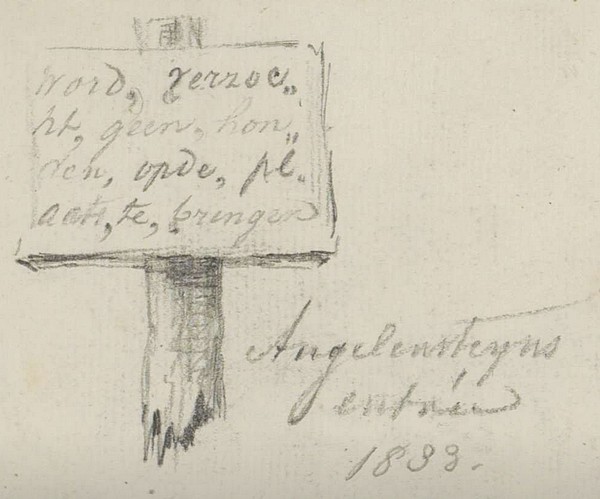 word, verzoe„
ht, geen, hon„
den, opde, pl.
aats, te, bringen
Angelensteyns
entrée
1833.